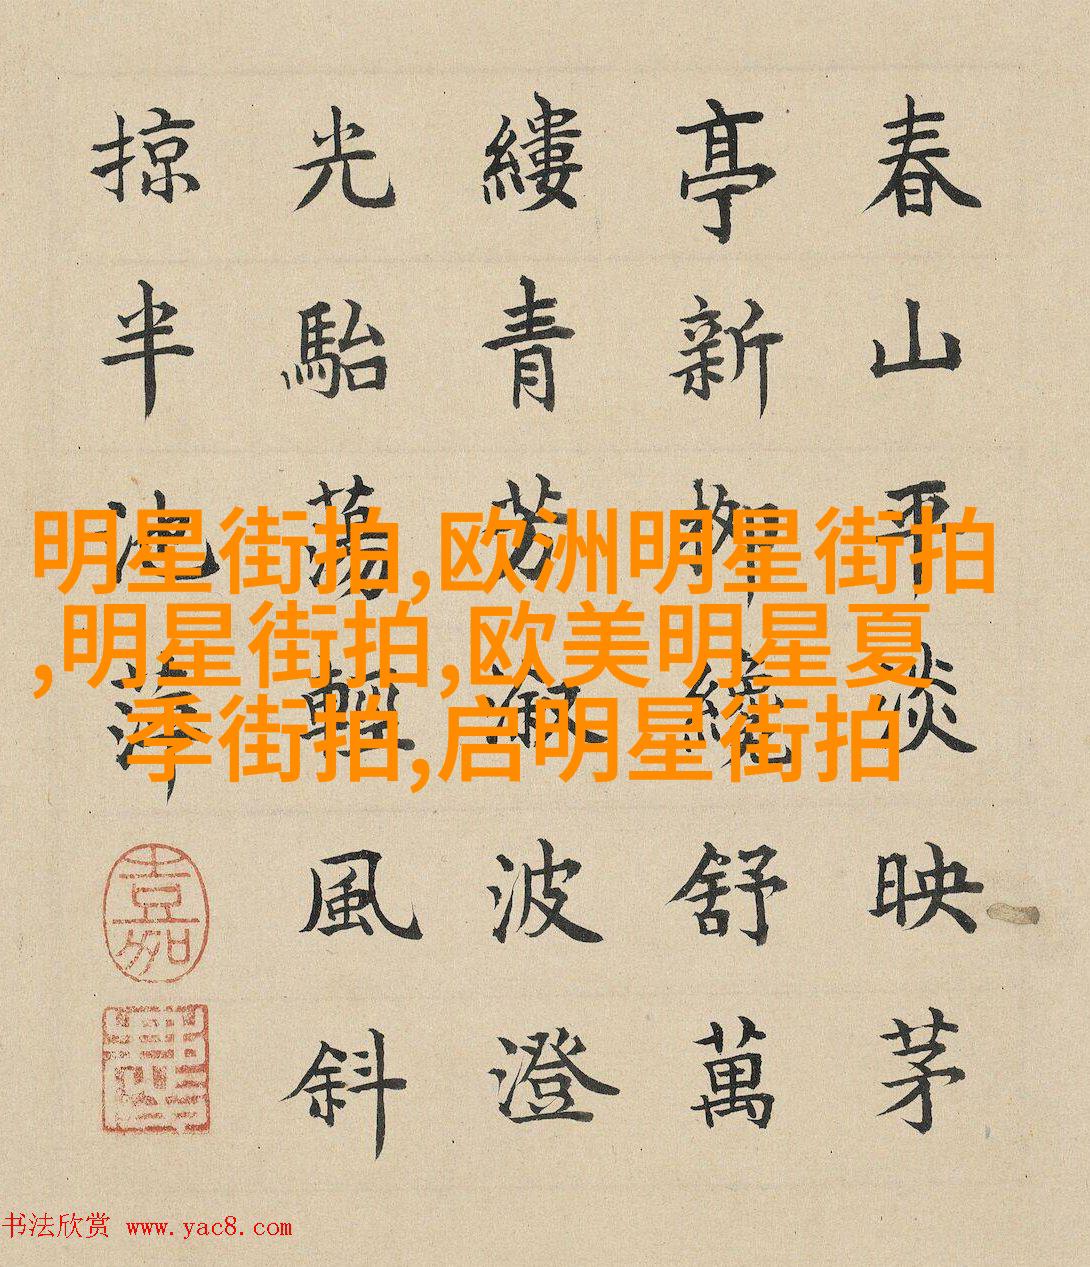 春山平淡映茅
亭新柳纔舒萬
縷青芳溆波澄
光駘蕩輕風斜
掠半池萍
嘉
明星街拍,欧洲明星街拍
,明星街拍,欧美明星夏
季街拍,启明星街拍
书法欣赏 www.yac8.com